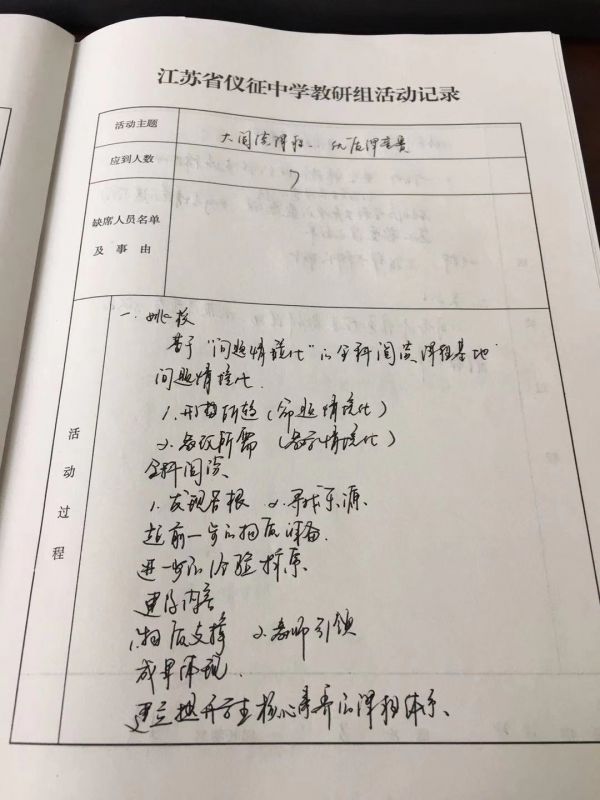 江苏省仪征中学教研组活动记录
活动主题
大阅读课程、优质课竞赛
应到人数
7
缺席人员名单
及事由
活动过程
一、姚校
基于“问题情境化”的全科阅读课程基地
问题情境化
1.形势所趋(命题情境化)
2.教改所需(教学情境化)
全科阅读
1.发现苦根 2.寻找乐源
超前一步的物质准备
进一步的体验探索
建设内容
1.物质支撑 2.教师引领
成果体现
建立提升学生核心素养的课程体系、